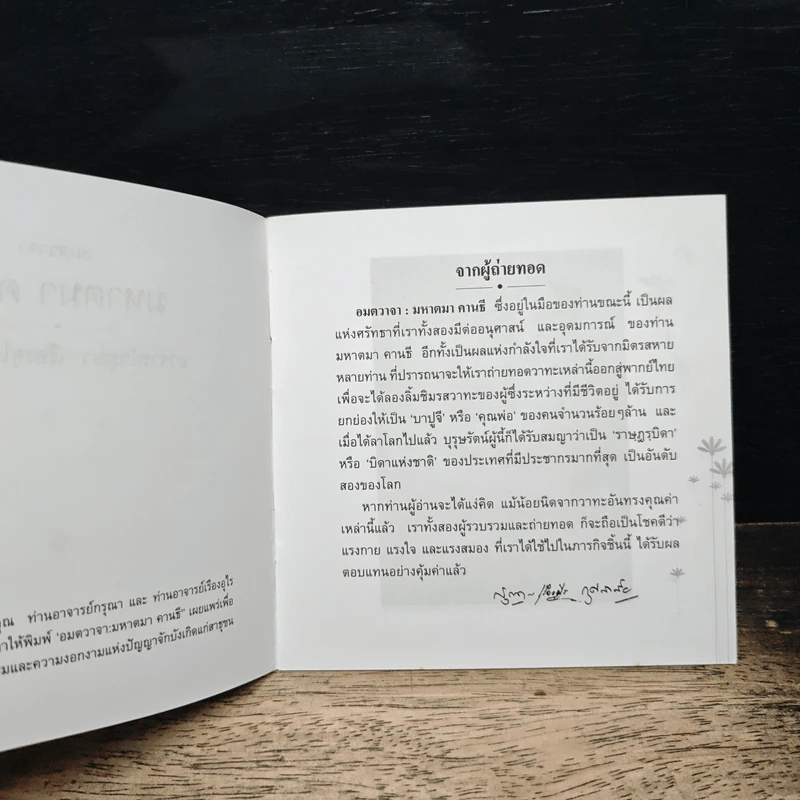 คุณ ท่านอาจารย์กรุณา และ ท่านอาจารย์เรืองอุไร
าให้พิมพ์ 'อมตวาจา:มหาตมา คานธี' เผยแพร่เพื่อ
มและความงอกงามแห่งปัญญาจักบังเกิดแก่สาธุชน
จากผู้ถ่ายทอด
อมตวาจา : มหาตมา คานธี ซึ่งอยู่ในมือของท่านขณะนี้ เป็นผล
แห่งศรัทธาที่เราทั้งสองมีต่ออนุศาสน์ และอุดมการณ์ ของท่าน
มหาตมา คานธี อีกทั้งเป็นผลแห่งกำลังใจที่เราได้รับจากมิตรสหาย
หลายท่าน ที่ปรารถนาจะให้เราถ่ายทอดวาทะเหล่านี้ออกสู่พากย์ไทย
เพื่อจะได้ลองลิ้มชิมรสวาทะของผู้ซึ่งระหว่างที่มีชีวิตอยู่ ได้รับการ
ยกย่องให้เป็น 'บาปูจี' หรือ 'คุณพ่อ' ของคนจำนวนร้อยๆล้าน และ
เมื่อได้ลาโลกไปแล้ว บุรุษรัตน์ผู้นี้ก็ได้รับสมญาว่าเป็น 'ราษฎรบิดา'
หรือ 'บิดาแห่งชาติ' ของประเทศที่มีประชากรมากที่สุด เป็นอันดับ
สองของโลก
หากท่านผู้อ่านจะได้แง่คิด แม้น้อยนิดจากวาทะอันทรงคุณค่า
เหล่านี้แล้ว เราทั้งสองผู้รวบรวมและถ่ายทอด ก็จะถือเป็นโชคดีว่า
แรงกาย แรงใจ และแรงสมอง ที่เราได้ใช้ไปในภารกิจชิ้นนี้ ได้รับผล
ตอบแทนอย่างคุ้มค่าแล้ว